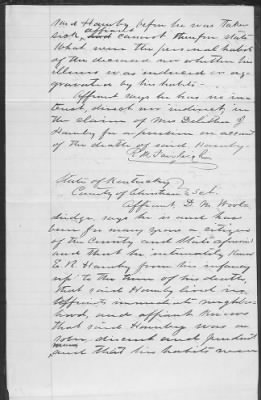 said Hamby before he was taken
affiant
sick, and cannot therefore state
What were the personal habits
of the deceased nor whether his
illness was induced or ag-
gravated by his habits.
Affiant says he has no in-
terest, direct nor indirect, in
the claim of Mrs
Hamby for a pension on account
of the death of said Hamby.
State of Kentucky
County of Christian Sct.
Affiant, D. M. Wool-
dridge, says he is and has
been for many years a citizen
of the County and State aforesaid
and that he intimately knew
E R Hamby from his infancy
up to the time of his death,
that said Hamby lived in
affiants immediate neighbor-
hood, and affiant knows
that said Hamby was a
sober, discreet and prudent
and that his habits were